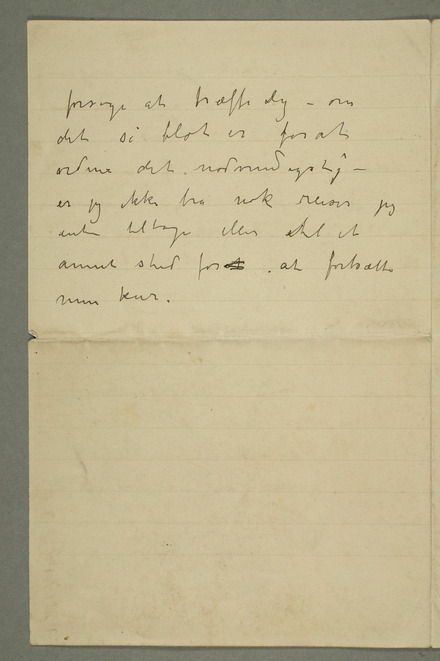 forsøge at træffe dig – om
det så blot er forat
ordne det nødvendigste –
er jeg ikke bra nok reiser jeg
enten tilbage eller til et
annet sted for at fortsætte
min kur.